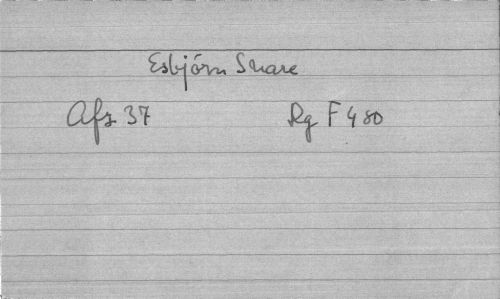 Esbjörn Snare
Afz 37 Rg F 480